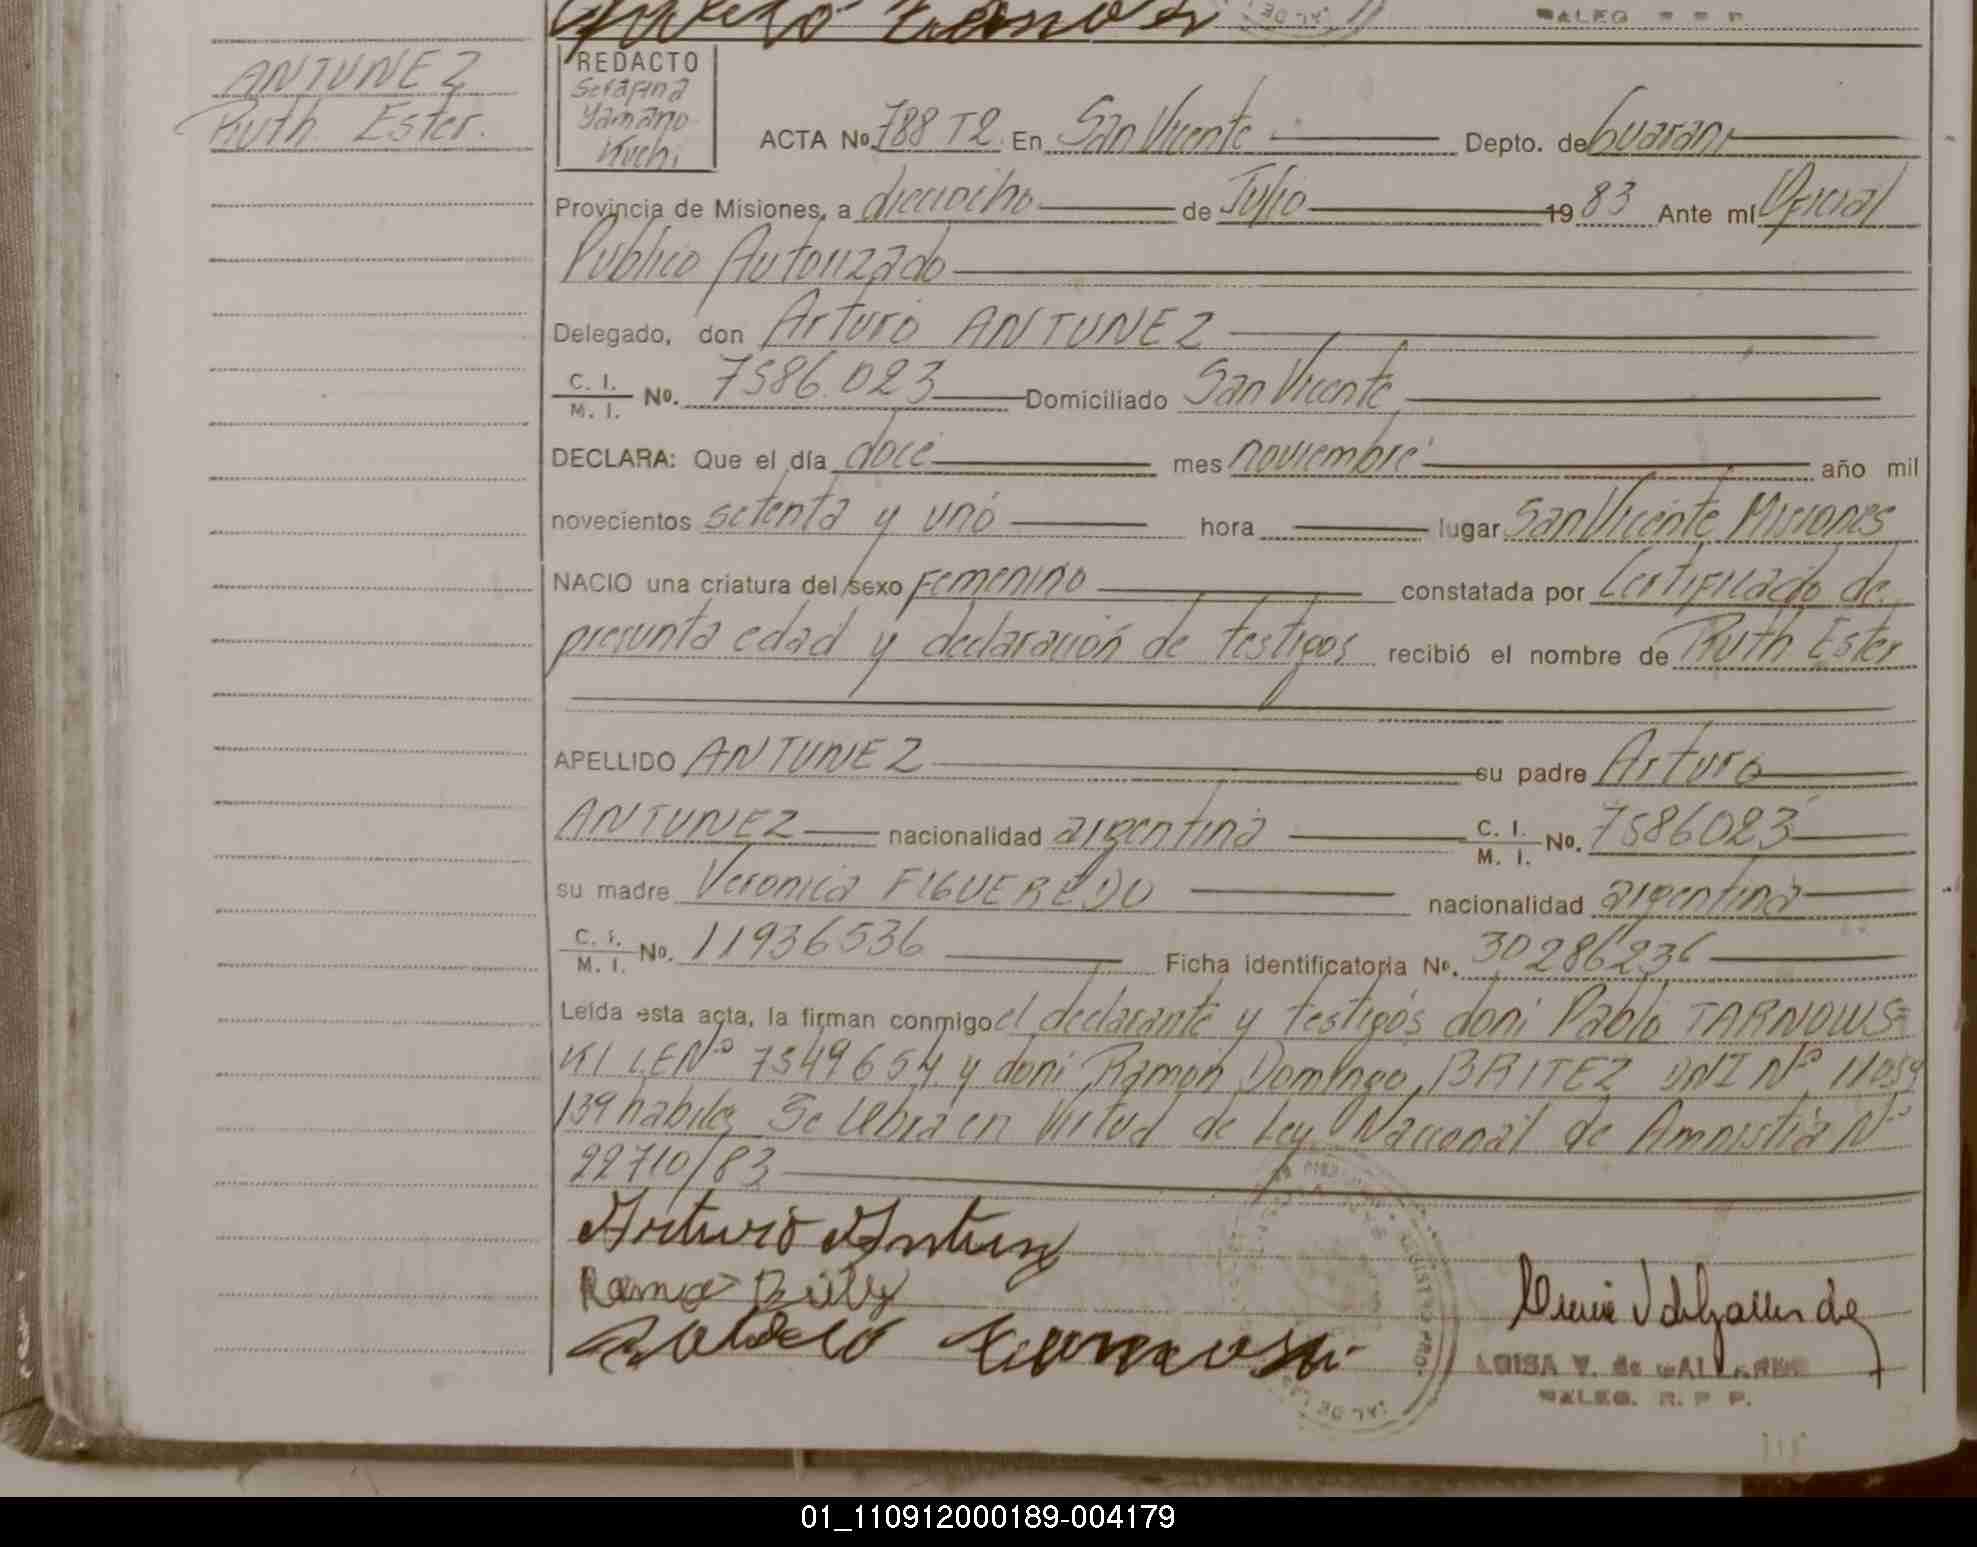 ANTUNEZ
Ruth Ester.
REDACTO
Serafina
Yamano
Kuchi
ACTA No. 788 T2 En San Vicente Depto. de Guarani
Provincia de Misiones, a dieciocho de Julio 1983 Ante mí Oficial
Publico Autorizado
Delegado, don Arturo ANTUNEZ
C. I.
M. I. No. 7586.023 Domiciliado San Vicente
DECLARA: Que el día doce mes noviembre año mil
novecientos setenta y uno hora lugar San Vicente Misiones
NACIO una criatura del sexo Femenino constatada por Certificado de
presunta edad y declaración de testigos recibió el nombre de Ruth Ester
APELLIDO ANTUNEZ su padre Arturo
ANTUNEZ nacionalidad argentina C. I.
M. I. No. 7586023
su madre Veronica FIGUEREDO nacionalidad argentina
C. I.
M. I. No. 11936536 Ficha identificatoria No. 30286236
Leída esta acta, la firman conmigo el declarante y testigos don: Pablo TARNOWS=
KI LE Nº 7549654 y don: Ramon Domingo BRITEZ DNI Nº 11059
139 habiles Se labra en Virtud de Ley Nacional de Amnistia Nº
22710/83
Arturo Antunez
LUISA V. de GALLARDO
R. P. P.
01_110912000189-004179